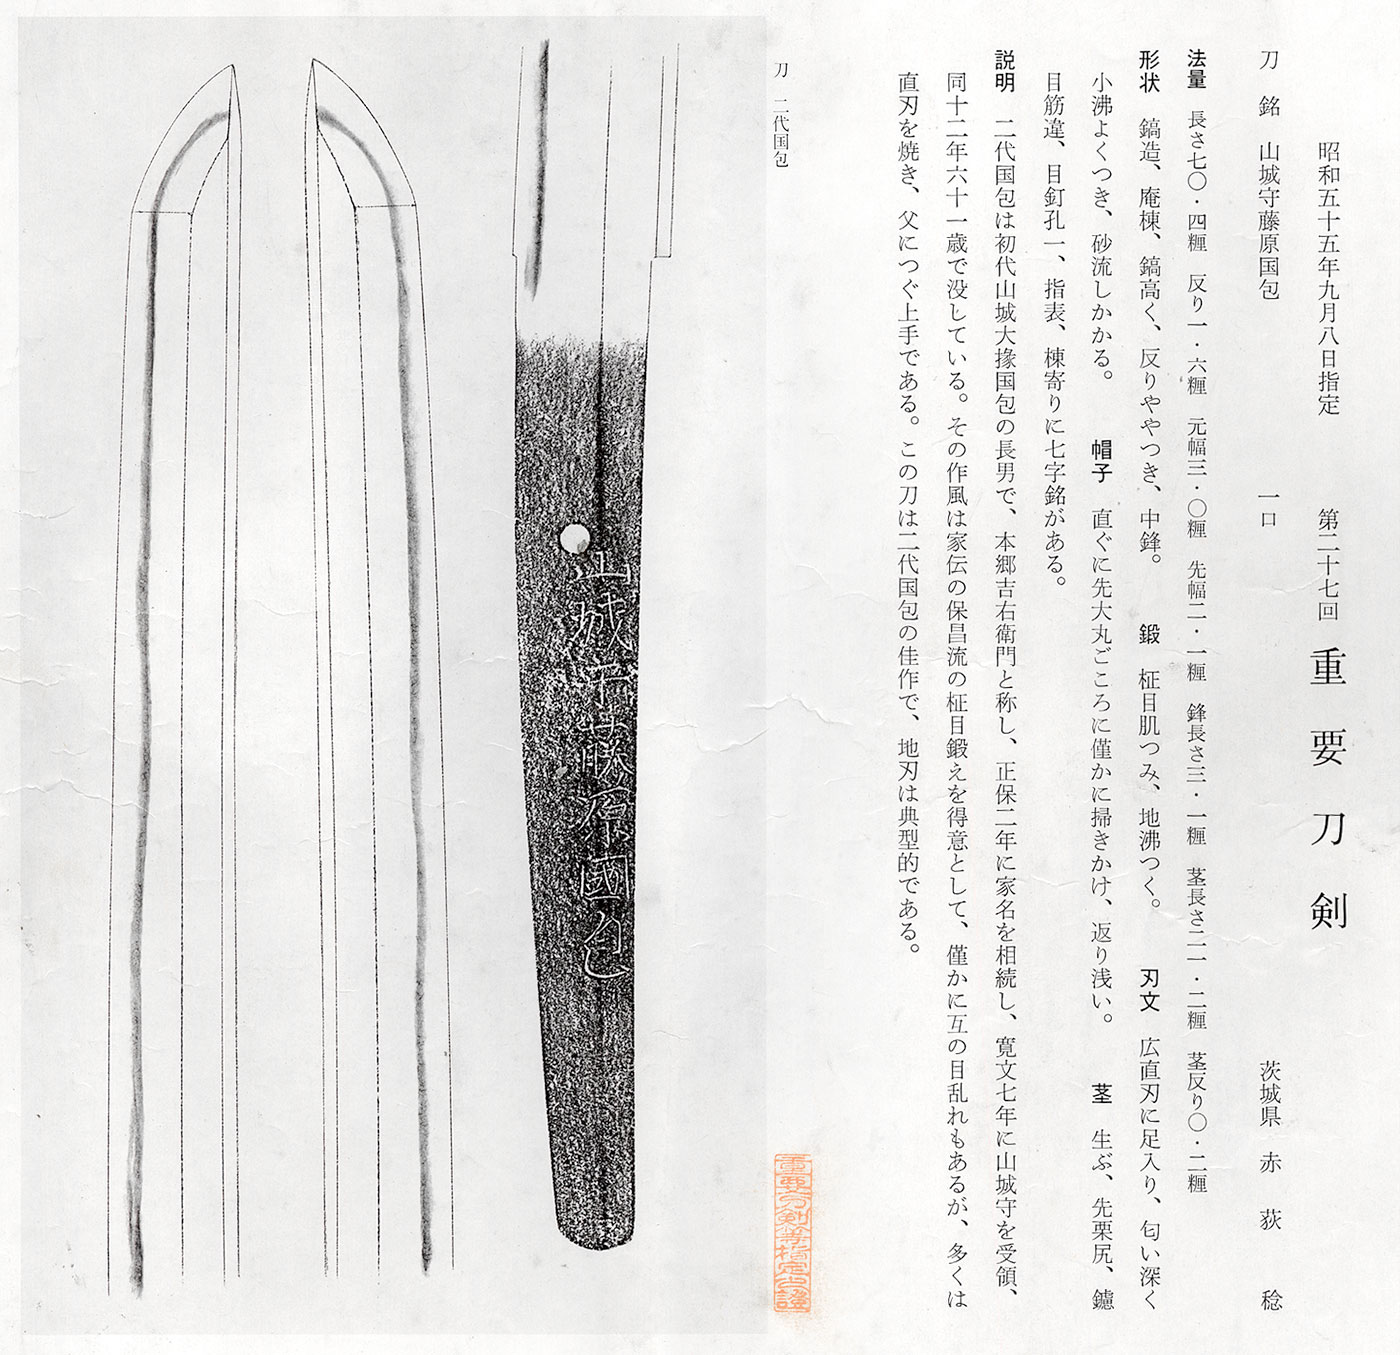 昭和五十五年九月八日指定　第二十七回　重要刀剣
刀　銘　山城守藤原国包　一口　茨城県　赤荻　稔
法量　長さ七〇・四糎　反り一・六糎　元幅三・〇糎　先幅二・一糎　鋒長さ三・一糎　茎長さ二一・二糎　茎反り〇・二糎
形状　鎬造、庵棟、鎬高く、反りややつき、中鋒。　鍛　柾目肌つみ、地沸つく。　刃文　広直刃に足入り、匂い深く
小沸よくつき、砂流しかかる。　帽子　直ぐに先大丸ごころに僅かに掃きかけ、返り浅い。　茎　生ぶ、先栗尻、鑢
目筋違、目釘孔一、指表、棟寄りに七字銘がある。
説明　二代国包は初代山城大掾国包の長男で、本郷吉右衛門と称し、正保二年に家名を相続し、寛文七年に山城守を受領、
同十二年六十一歳で没している。その作風は家伝の保昌流の柾目鍛えを得意として、僅かに互の目乱れもあるが、多くは
直刃を焼き、父につぐ上手である。この刀は二代国包の佳作で、地刃は典型的である。
刀　二代国包
重要刀剣等指定之證
山城守藤原國包